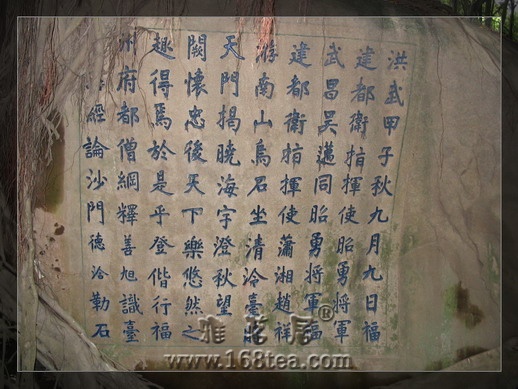 洪武甲子秋九月九日福
建都衛指揮使昭勇將軍
武昌吳邁同昭勇將軍福
建都衛指揮使瀟湘趙祥
游南山烏石坐清泠臺
天門揭曉海宇澄秋望
闕懷忠後天下樂悠然之
趣得焉於是乎登偕行福
州府都僧綱釋善旭識臺
經論沙門德泠勒石
雅茗居®
www.168tea.com